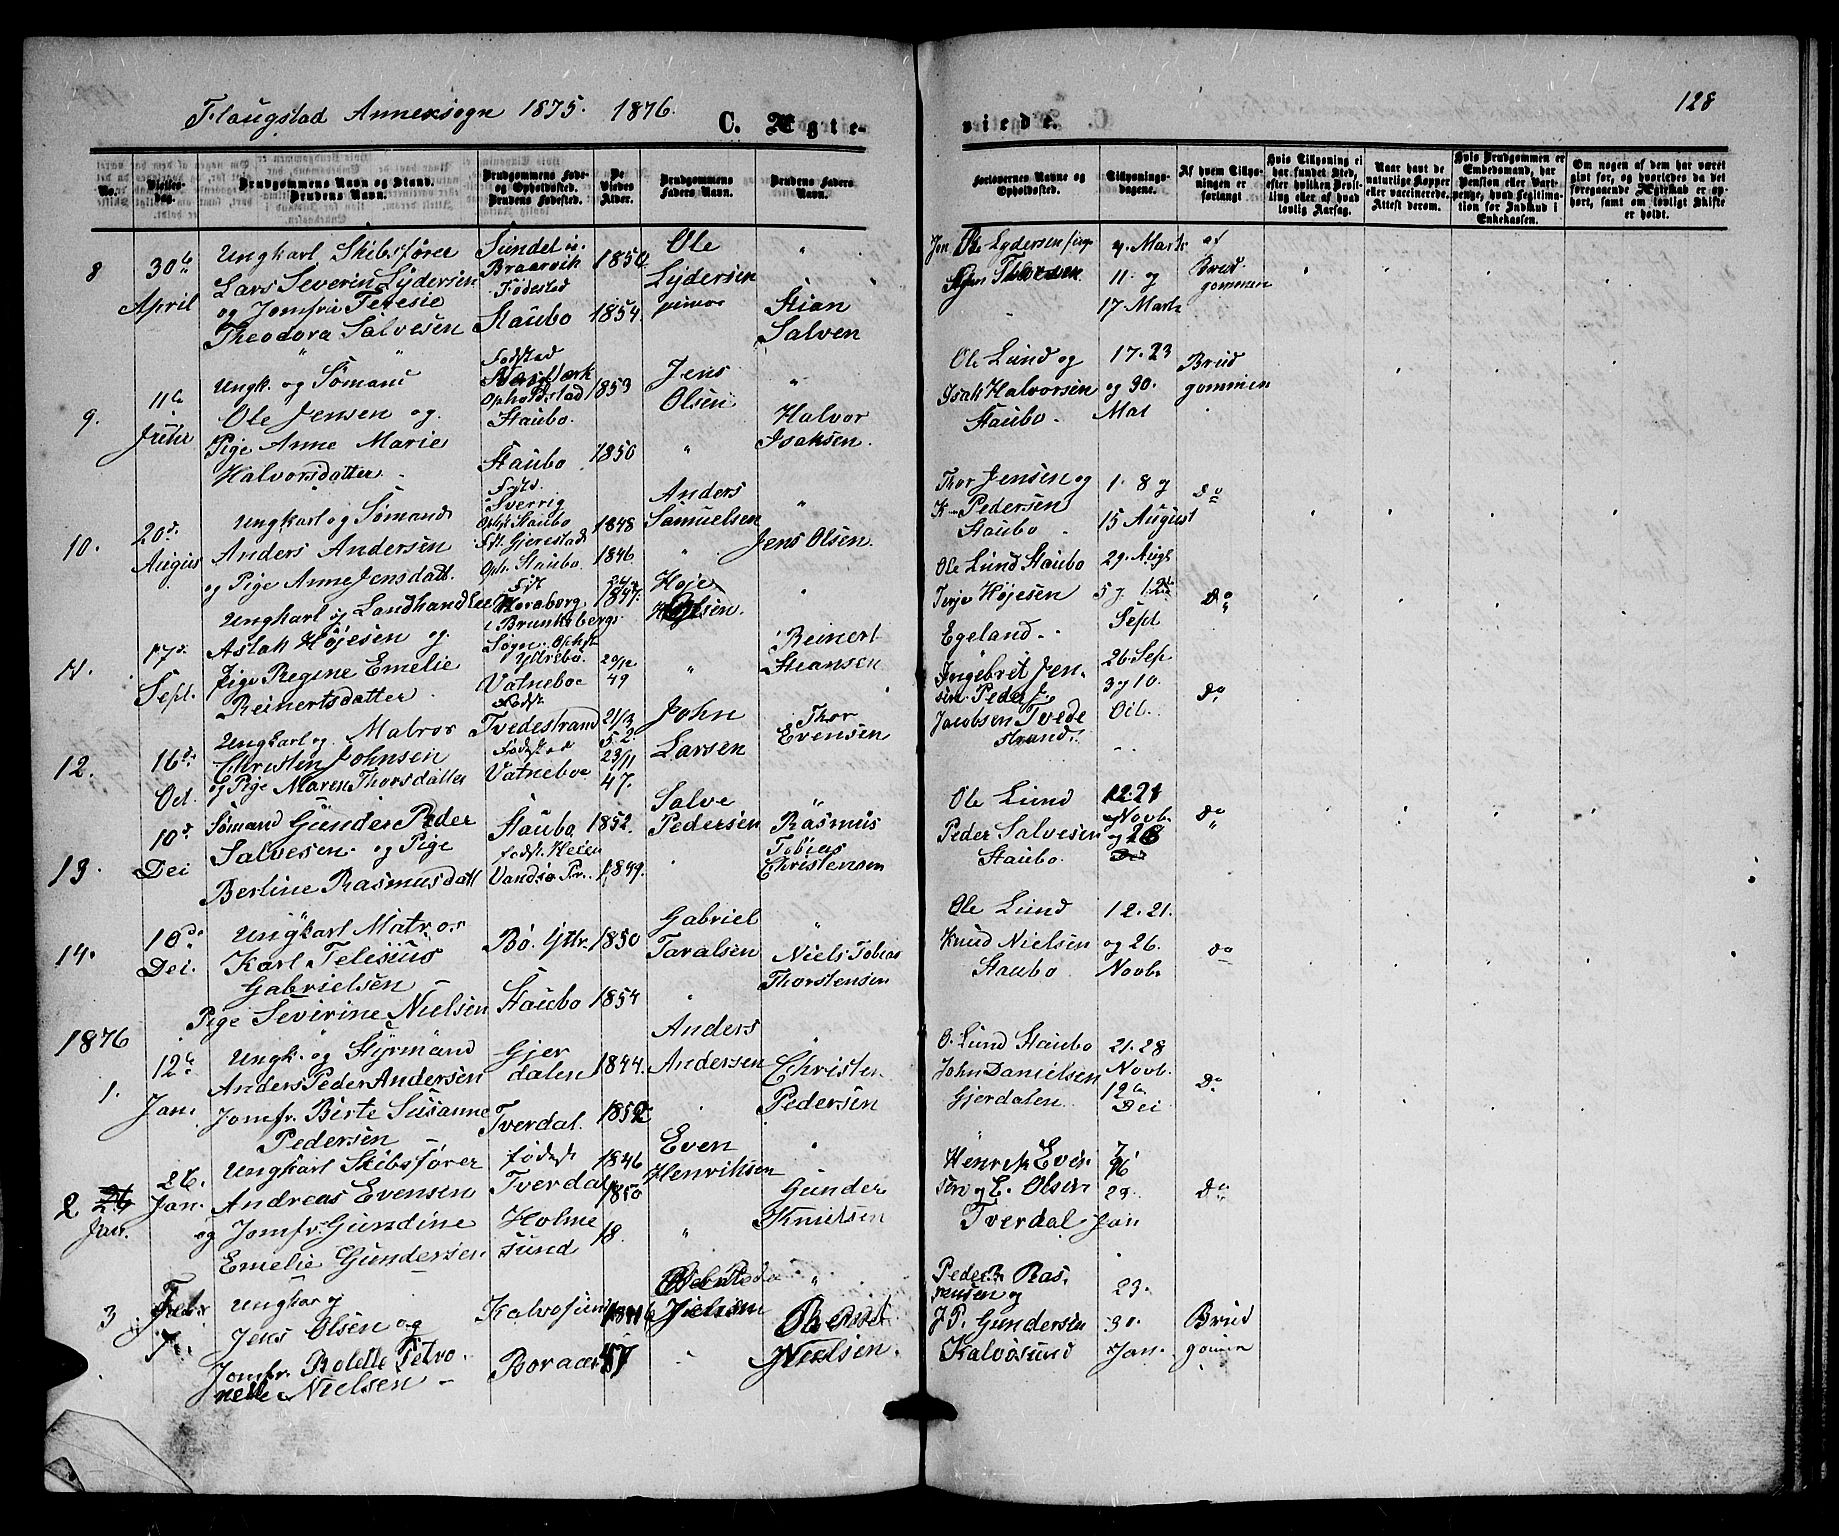 Flaugstad Annexsogn 1875. 1876.
C. Ægte-
viede.
128
No.
Vielses-
dag.
Brudgommens Navn og Stand.
Brudens Navn.
Brudgommens Føde-
og Opholdssted.
Brudens Fødested.
De
Viedes
Alder.
Brudgommens
Faders Navn.
Brudens Faders
Navn.
Forlovernes Navne og
Opholdssted.
Tillysnings-
dagene.
Af hvem Tillys-
ningen er
forlangt
Hvis Tillysning ei
har fundet Sted,
efter hvilken Bevil-
ling eller af hvad
lovlig Aarsag.
Naar havt de
naturlige Kopper
eller vaccinerede.
Attest derom.
Hvis Brudgommen er
Embedsmand, har
Pension eller Vart-
penge, hvad Legitima-
tion for Indskud i
Enkekassen.
Om nogen af dem har været
givt før, og hvorledes da det
foregaaende Ægteskab er op-
hørt, samt om lovligt Skifte
er holdt.
8
30te
April
Ungkarl Skibsfører
Lars Severin Lydersen
og Jomfru Teresie
Theodora Salvesen
Sundet
Braarvik
Fødested
Staubo
1850
1854.
Ole
Lydersen
Stian
Salven
Ole Lydersen
7. Marts
11. og
17. Marts
af
Brud
gommen
9.
11te
Ungk. og Sømand
Ole Jensen og
Pige Anne Marie
Halvorsdatter
Fødsted
Opholdstad
Staubo.
Staubo
1853
1850
Jens
Olsen
Halvor
Isaksen.
Ole Lund og
Isak Halvorsen
Staubo.
17. 23
og 30.
Mai
Brud
gommen
10.
20de
Augus
Ungkarl og Sømand
Anders Andersen
og Pige Anne Jensdatt.
Sverrig
Staubo
Gjerestad
Staubo
1848
1846
Anders
Samuelsen
Jens Olsen.
Thor Jensen og
K. Pedersen
Staubo
1. 8 og
15 August
Do
11.
17de
Sept.
Ungkarl og Landhandler
Aslak Højesen og
Pige Regine Emelie
Reinertsdatter
Sogn. Ophst
Vatneboe
1847.
49
Høje
Reinert
Steansen
Ole Lund Staubo
Terje Højesen
Egeland.
29. Augt
Sept
Do
12.
16de
Oct.
Ungkarl og Matros
Christen Johnsen
og Pige Maren Thorsdatter
Fødst.
Tvedestrand
Fødsted
Vatneboe
21/3
52.
23/11
47.
John
Larsen
Thor
Evensen
Ingebret Jen-
sen Peder J.
Jacobsen Tvede
strand.
26. Sep
3 og 10.
Oct.
Do
13.
10de
Dec
Sømand Gunder Peder
Salvesen og Pige
Berline Rasmusdatt
Staubo
fødst. Heien
1852.
1849.
Salve
Pedersen
Rasmus
Tobias
Christensen
Ole Lund
Peder Salvesen
Staubo.
12. 21
Novb.
og 26
Do
14.
10de
Dec.
Ungkarl Matros
Karl Telesius
Gabrielsen
Pige Severine Nielsen
Bø. Yttr.
Staubo
1850
1854
Gabriel
Taralsen
Niels Tobias
Thorstensen
Ole Lund
Knud Nielsen
Staubo
12. 21.
og 26.
Novb.
Do
1876
1.
12te
Jan.
Ungk. og Styrmand
Anders Peder Andersen
Jomfr. Birte Susanne
Pedersen
Gjer
dalen
Tverdal.
1844.
1852
Anders
Andersen
Christen
Pedersen
O. Lund Staubo
John Danielsen
Gjerdalen
21. 28
Novb.
12te
Dec
Do
2
26.
Jan.
Jan.
Ungkarl Skibsfører
Andreas Evensen
og Jomfr. Gundine
Emelie Gundersen
fødest
Tverdal
Holme
sund
1846
1850
18
Even
Henriksen
Gunder
Knutsen
Henrik Even
sen og E. Olsen
Tverdal
23.
Jan
Do
3
Febr
Ungkar og
Jens Olsen og
Jomfr. Bolette Petro
nelle Nielsen
Kalvøsund
Boraas
47
Nielsen.
Peder Ras.
musen og
J. P. Gundersen
Kalvøsund
23.
30.
Jan.
Brud
gomen